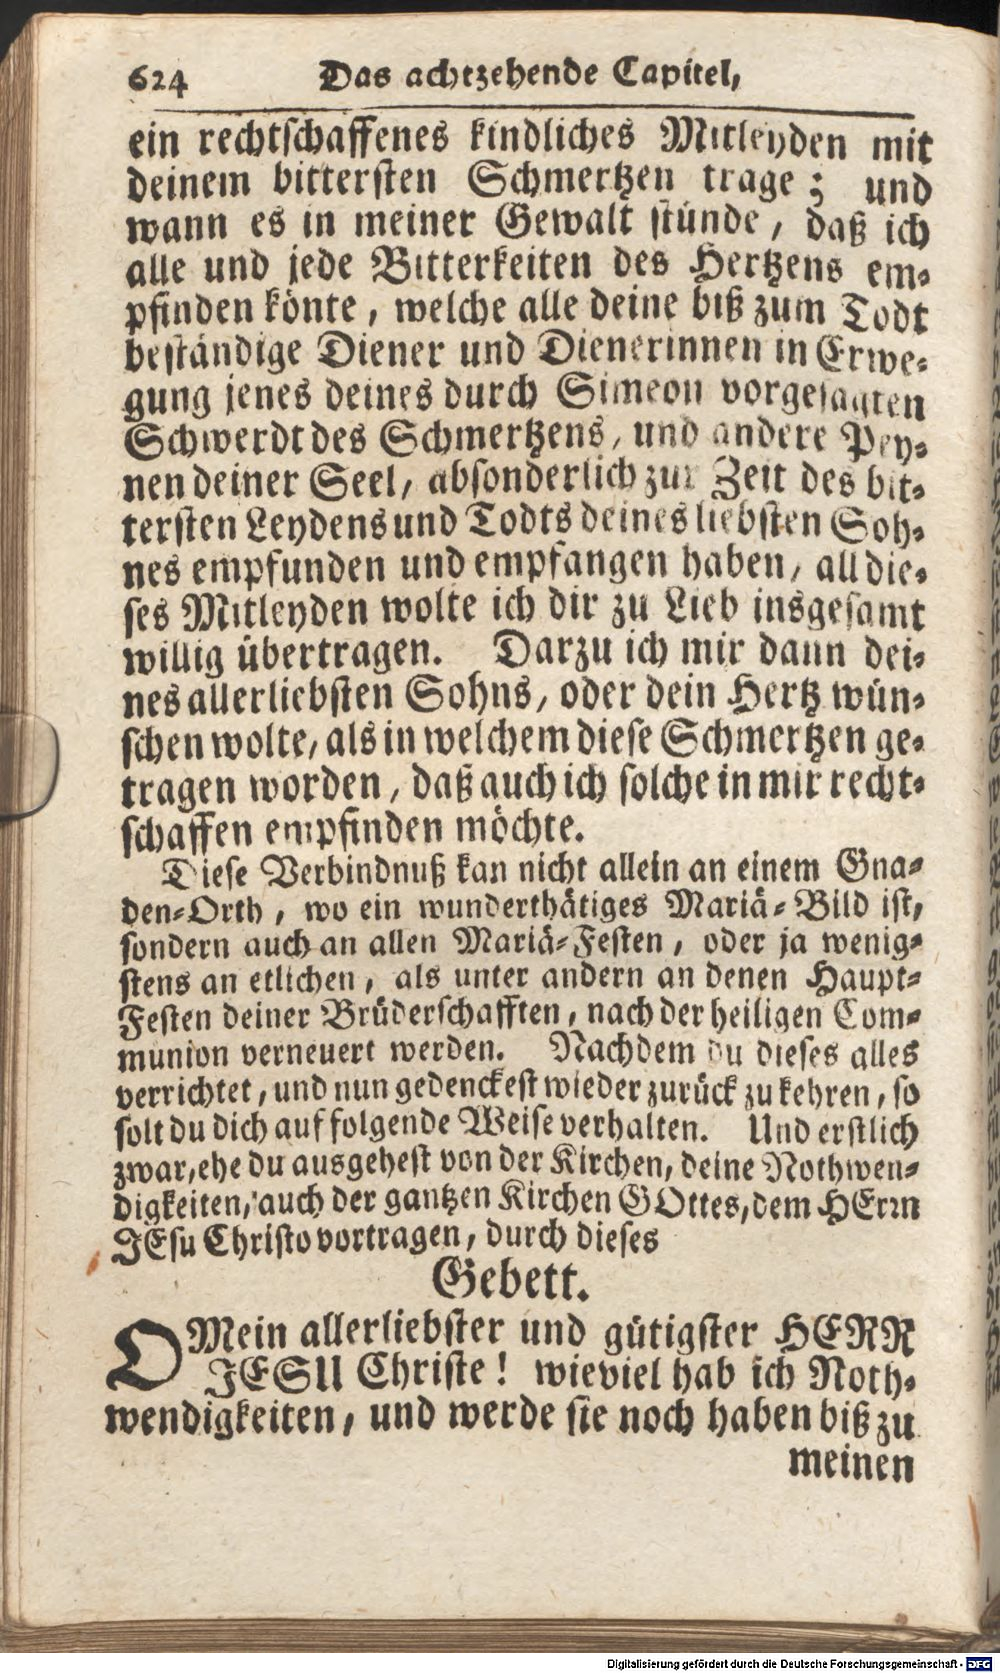 624 Das achtzehende Capitel,
ein rechtschaffenes kindliches Mitleyden mit
deinem bittersten Schmertzen trage; und
wann es in meiner Gewalt stünde, daß ich
alle und jede Bitterkeiten des Hertzens em-
pfinden könte, welche alle deine biß zum Todt
beständige Diener und Dienerinnen in Erwe-
gung jenes deines durch Simeon vorgesagten
Schwerdt des Schmertzens, und andere Pey-
nen deiner Seel, absonderlich zur Zeit des bit-
tersten Leydens und Todts deines liebsten Soh-
nes empfunden und empfangen haben, all die-
ses Mitleyden wolte ich dir zu Lieb insgesamt
willig übertragen. Darzu ich mir dann dei-
nes allerliebsten Sohns, oder dein Hertz wün-
schen wolte, als in welchem diese Schmertzen ge-
tragen worden, daß auch ich solche in mir recht-
schaffen empfinden möchte.
Diese Verbindnuß kan nicht allein an einem Gna-
den-Orth, wo ein wunderthätiges Mariä-Bild ist,
sondern auch an allen Mariä-Festen, oder ja wenig-
stens an etlichen, als unter andern an denen Haupt-
Festen deiner Brüderschafften, nach der heiligen Com-
munion verneuert werden. Nachdem du dieses alles
verrichtet, und nun gedenckest wieder zurück zu kehren, so
solt du dich auf folgende Weise verhalten. Und erstlich
zwar, ehe du ausgehest von der Kirchen, deine Nothwen-
digkeiten, auch der gantzen Kirchen GOttes, dem HErrn
JEsu Christo vortragen, durch dieses
Gebett.
O Mein allerliebster und gütigster HERR
JESU Christe! wieviel hab ich Noth-
wendigkeiten, und werde sie noch haben biß zu
meinen
Digitalisierung gefördert durch die Deutsche Forschungsgemeinschaft - DFG